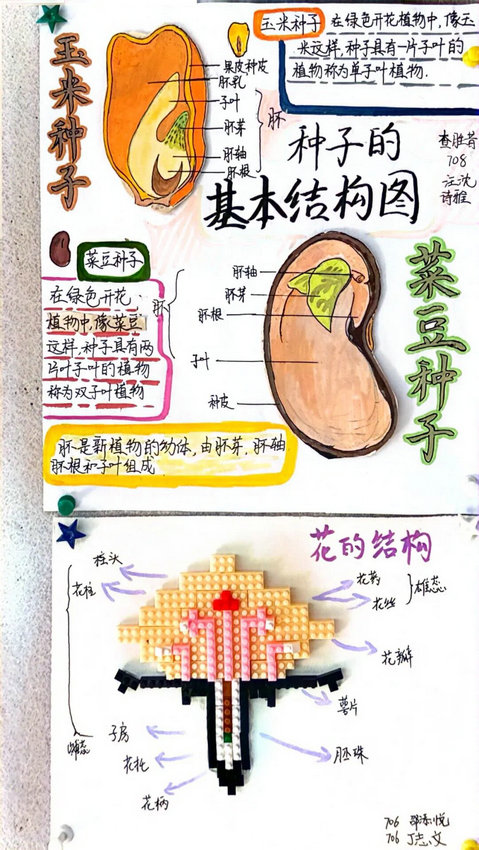 玉米种子
玉米种子 在绿色开花植物中,像玉
米这样,种子具有一片子叶的
植物称为单子叶植物.
果皮种皮
胚乳
子叶
胚芽
胚轴
胚根
胚
种子的
基本结构图
708
汪沈
诗雅
菜豆种子
在绿色开花
植物中,像菜豆
这样,种子具有两
片子叶的植物
称为双子叶植物
胚
胚轴
胚芽
胚根
子叶
种皮
菜豆种子
胚是新植物的幼体,由胚芽,胚轴
胚根和子叶组成
花的结构
柱头
花柱
子房
雌蕊
花托
花柄
花药
花丝
雄蕊
花瓣
萼片
胚珠
706
706 丁志文